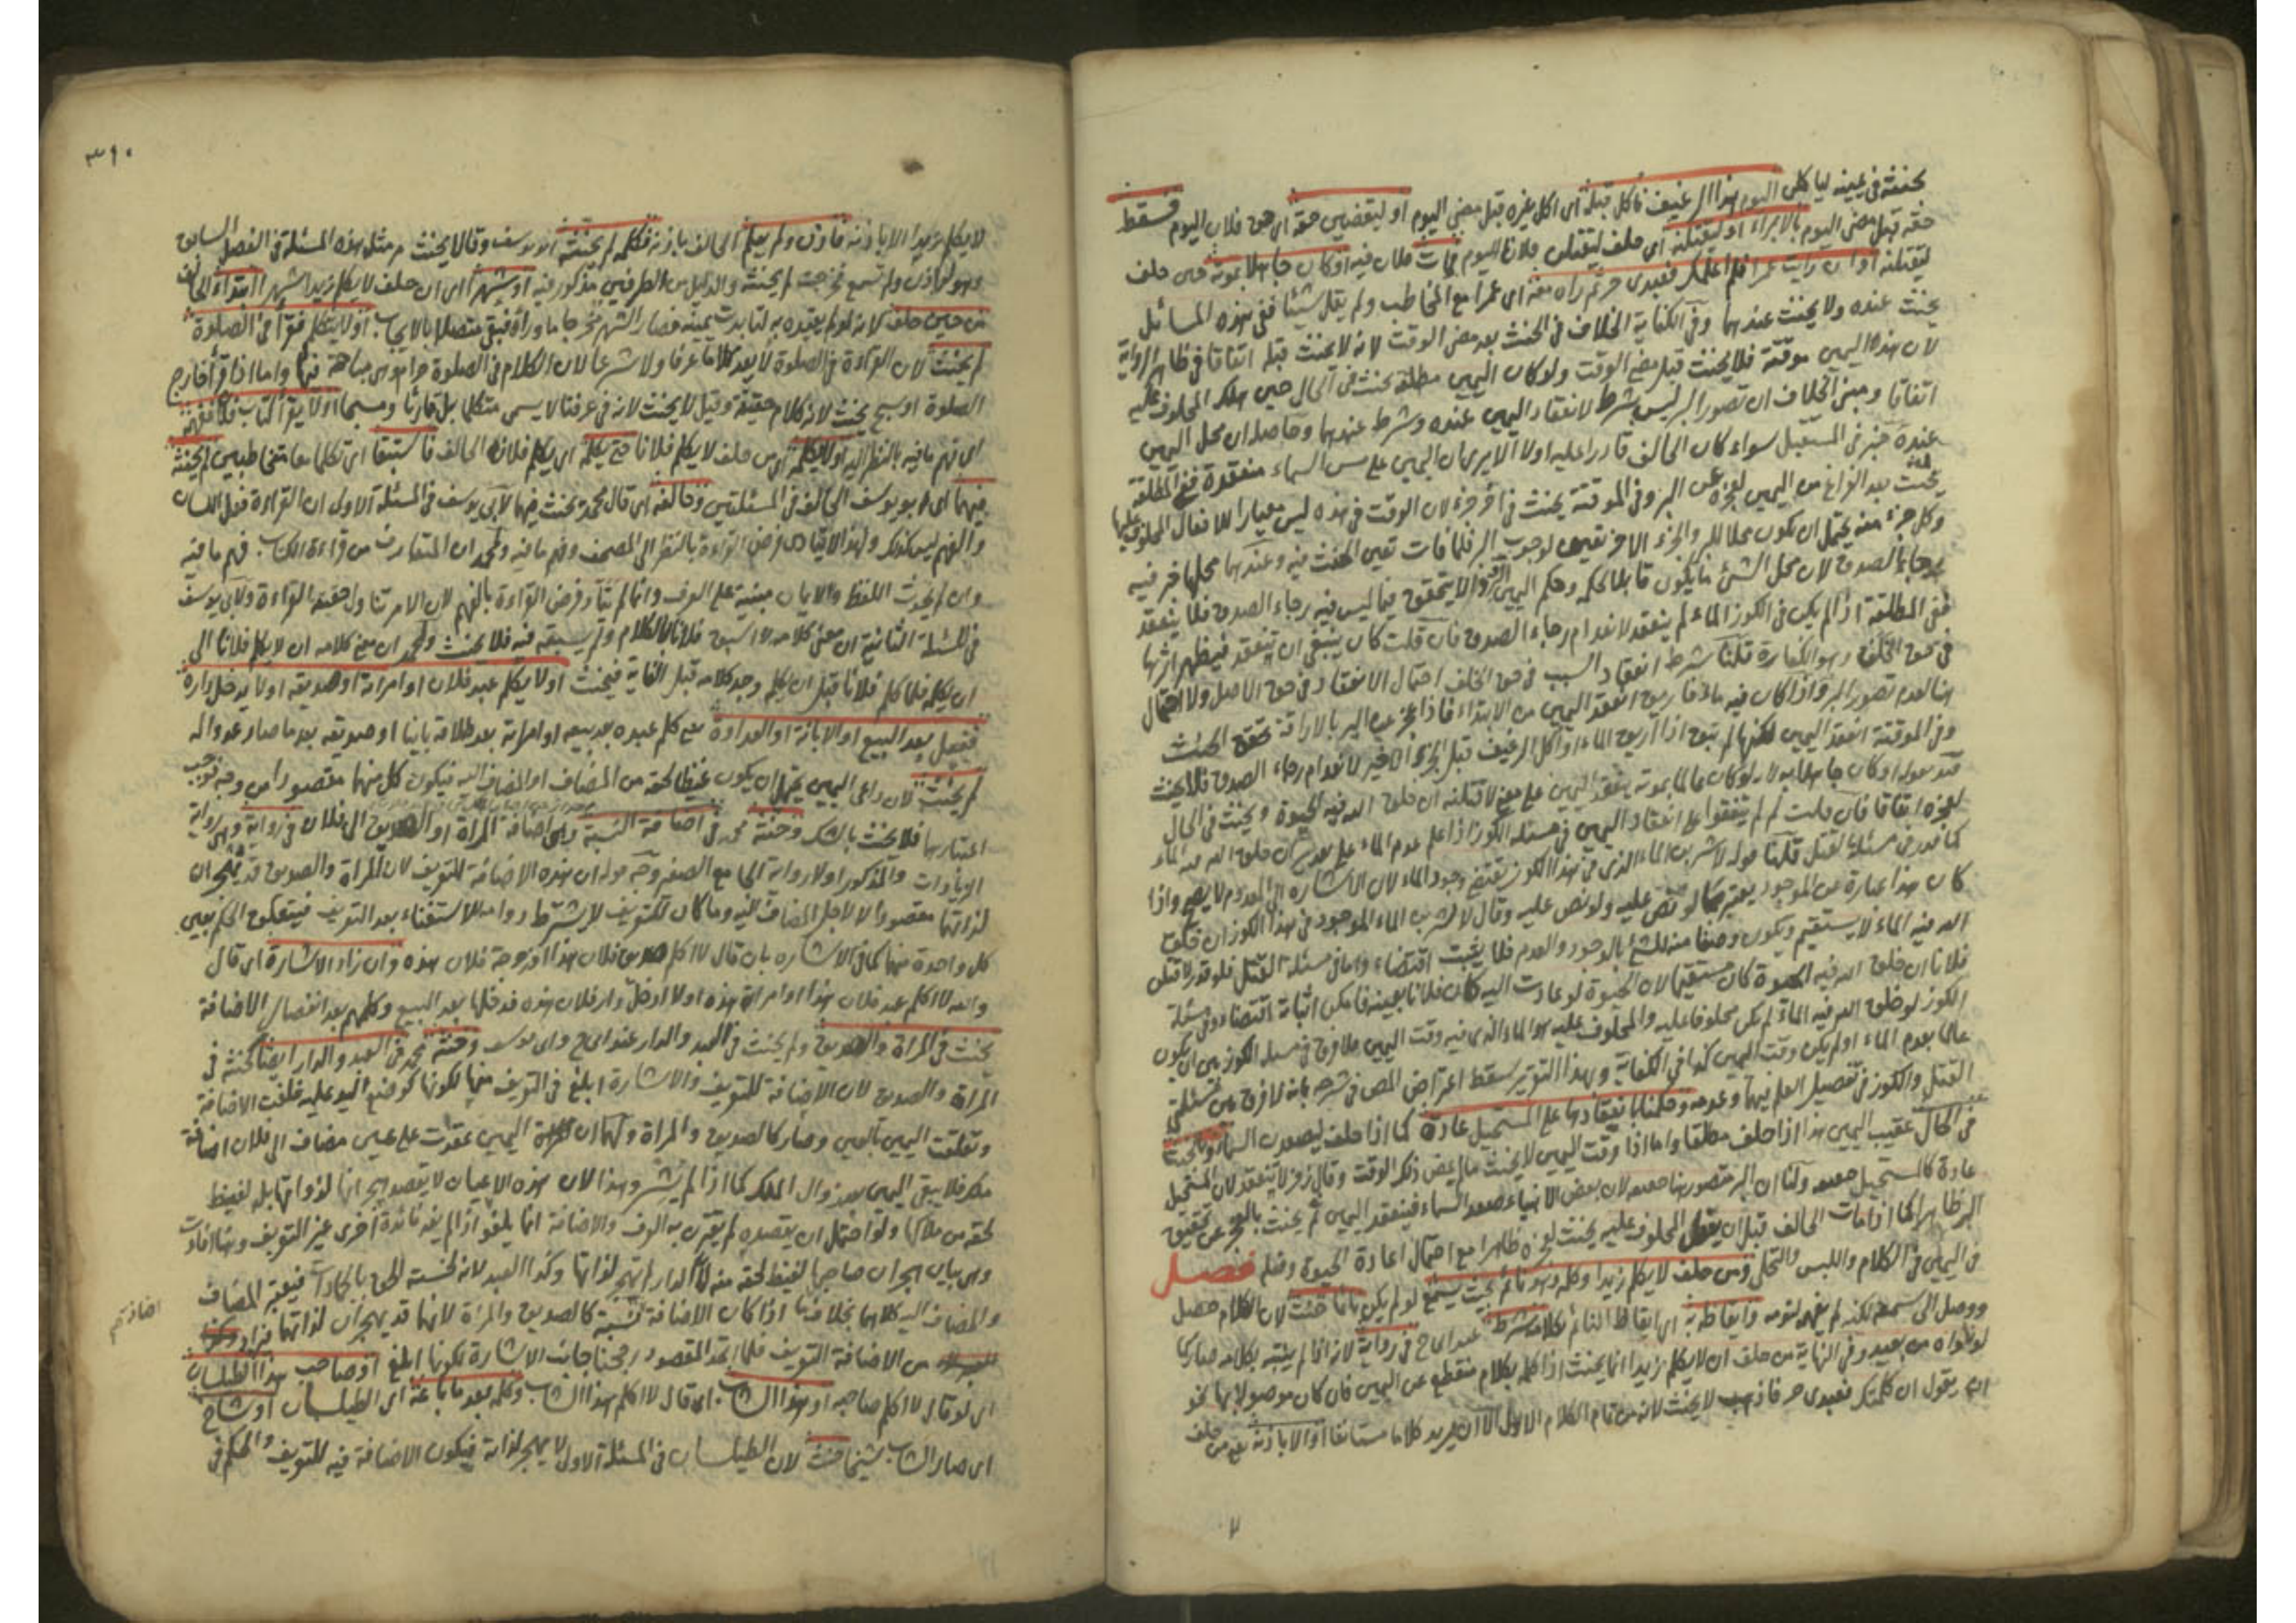 يحنثه في يمينه ليأكلن اليوم هذا الرغيف فأكل قبله أي أكل غيره قبل مضي اليوم أو ليقضين حقه أي حق فلان اليوم فسقط
حقه قبل مضي اليوم بالإبراء أو ليقتلنه أي حلف ليقتلن فلانا اليوم فمات فلان فيه أو كان جاهلا بموته حين حلف
ليقتلنه أو ان رأيت عمرا فلم أعلمك فعبدي حر ثم رآه معه أي عمرا مع المخاطب ولم يقل شيئا ففي هذه المسائل
يحنث عنده ولا يحنث عندهما وفي الكفاية الخلاف في الحنث بعد مضي الوقت لانه لا يحنث قبله اتفاقا في ظاهر الرواية
لان هذه اليمين موقتة فلا يحنث قبل مضي الوقت ولو كان اليمين مطلقة يحنث في الحال حين هلك المحلوف عليه
اتفاقا ومبنى الخلاف ان تصور البر ليس بشرط لانعقاد اليمين عنده وشرط عندهما وحاصله ان محل اليمين
عنده خبر في المستقبل سواء كان الحالف قادرا عليه اولا الا يرى ان اليمين على مس السماء منعقدة ففي المطلقة
يحنث بعد الفراغ من اليمين لعجزه عن البر وفي الموقتة يحنث في آخر جزء لان الوقت في هذه ليس معيارا للافعال المحلوف عليها
وكل جزء منه يحتمل ان يكون محلا للبر والجزء الاخر تعين لوجوب البر فلما فات تعين الحنث فيه وعندهما محلها خبر فيه
رجاء الصدق لان محل الشئ ما يكون قابلا لحكمه وحكم اليمين البر وذا لا يتحقق فيما ليس فيه رجاء الصدق فلا ينعقد
ففي المطلقة اذا لم يكن في الكوز الماء لم ينعقد لانعدام رجاء الصدق فان قلت كان ينبغي ان ينعقد فيظهر اثرها
في حق الخلف وهو الكفارة قلنا شرط انعقاد السبب في حق الخلف احتمال الانعقاد في حق الاصل ولا احتمال
هنا لعدم تصور البر واذا كان فيه ماء فاريق انعقد اليمين من الابتداء فاذا عجز عن البر بالاراقة تحقق الحنث
وفي الموقتة انعقد اليمين لكنها لم تبق اذا اريق الماء او اكل الرغيف قبل الجزء الاخير لانعدام رجاء الصدق فلا يحنث
قيد بقوله او كان جاهلا به لانه لو كان عالما بموته ينعقد اليمين على معنى لاقتلنه ان خلق الله فيه الحيوة ويحنث في الحال
لعجزه اتفاقا فان قلت لم لم يتفقوا على انعقاد اليمين في مسئلة الكوز اذا علم عدم الماء على تقدير ان خلق الله فيه الماء
كما قدر في مسئلة القتل قلنا قوله لاشربن الماء الذي في هذا الكوز يقتضي وجود الماء لان الاشارة الى المعدوم لا يصح واذا
كان هذا عبارة عن الموجود يعتبر كما لو نص عليه ولو نص عليه وقال لاشربن الماء الموجود في هذا الكوز ان خلق
الله فيه الماء لا يستقيم ويكون وصفا منه للشئ بالوجود والعدم فلا يثبت اقتضاء واما في مسئلة القتل فلو قدر لاقتلن
فلانا ان خلق الله فيه الحيوة كان مستقيما لان الحيوة لو عادت اليه كان فلانا بعينه فامكن اثباته اقتضاء وفي مسئلة
الكوز لو خلق الله فيه الماء لم يكن محلوفا عليه والمحلوف عليه هو الماء الذي فيه وقت اليمين فلا فرق في مسئلة الكوز بين ان يكون
عالما بعدم الماء او لم يكن وقت اليمين كذا في الكفاية وبهذا التقرير سقط اعتراض المص في شرحه بانه لا فرق بين مسئلتي
القتل والكوز في تفصيل العلم فيهما وعدمه وحكمنا بانعقادها على المستحيل عادة كما اذا حلف ليصعدن السماء والحنث
في الحال عقيب اليمين هذا اذا حلف مطلقا واما اذا وقت اليمين لا يحنث ما لم يمض ذلك الوقت وقال زفر لا ينعقد لان المستحيل
عادة كالمستحيل حقيقة ولنا ان البر متصور هنا حقيقة لان بعض الانبياء صعد السماء فينعقد اليمين ثم يحنث بالعجز عن تحقيق
البر ظاهرا كما اذا مات الحالف قبل ان يفعل المحلوف عليه يحنث لعجزه ظاهرا مع احتمال اعادة الحيوة وفعله فصل
في اليمين في الكلام واللبس والتحلي ومن حلف لا يكلم زيدا وكلمه وهو نائم بحيث يسمع لو لم يكن نائما حنث لان الكلام حصل
ووصل الى سمعه لكنه لم يفهم لنومه وايقاظه به اي ايقاظ النائم بكلامه شرط عند ابي ح في رواية لانه اذا لم يتنبه بكلامه صار كما
لو ناداه من بعيد وفي النهاية من حلف ان لا يكلم زيدا انما يحنث اذا كلمه بكلام منقطع عن اليمين فان كان موصولا بها نحو
ان يقول ان كلمتك فعبدي حر فاذهب لا يحنث لانه من تمام الكلام الاول الا ان يريد كلاما مستانفا او الا باذنه يعني من حلف
٣١٠
لا يكلم زيدا الا باذنه فاذن ولم يعلم الحالف باذنه فكلمه لم يحنثه ابو يوسف وقالا يحنث مر مثل هذه المسئلة في الفصل السابق
وهو لو اذن ولم تسمع فخرجت لم يحنثه والدليل من الطرفين مذكور فيه او شهرا اي ان حلف لا يكلم زيدا شهرا ابتداء الحالف
من حين حلف لانه لو لم يقيده به لتابدت يمينه فصار الشهر مخرجا ما وراه فبقي متصلا بالايجاب او لا يتكلم فقرأ في الصلوة
لم يحنث لان القراءة في الصلوة لا يعد كلاما عرفا ولا شرعا لان الكلام في الصلوة حرام وهي مباحة فيها واما اذا قرأ خارج
الصلوة او سبح يحنث لانه كلام حقيقة وقيل لا يحنث لانه في عرفنا لا يسمى متكلما بل قارئا ومسبحا او لا يقرأ كتاب فلان ففهمه
اي فهم ما فيه بالنظر اليه او لا يكلمه اي من حلف لا يكلم فلانا حتى يكلمه اي يكلم فلان الحالف فاستبقا اي تكلما معا متخاطبين لم يحنثه
فيهما اي ابو يوسف الحالف في المسئلتين وخالفه اي قال محمد يحنث فيهما لابي يوسف في المسئلة الاولى ان القراءة فعل اللسان
والفهم ليس كذلك ولهذا لا يتأدى فرض القراءة بالنظر الى المصحف وفهم ما فيه ولمحمد ان المتعارف من قراءة الكتاب فهم ما فيه
وان لم يحدث اللفظ والايمان مبنية على العرف وانما لم يتأد فرض القراءة بالفهم لان الامر تناول حقيقة القراءة ولابي يوسف
في المسئلة الثانية ان معنى كلامه لو اسبق فلانا بالكلام ولم يسبقه فيه فلا يحنث ولمحمد ان معنى كلامه ان لا يكلم فلانا الى
ان يكلمه فلما كلم فلانا قبل ان يكلم وجد كلامه قبل الغاية فيحنث او لا يكلم عبد فلان او امرأته او صديقه او لا يدخل داره
ففعل بعد البيع او الابانة او العداوة يعني كلم عبده بعد بيعه او امرأته بعد طلاقه باينا او صديقه بعد ما صار عدوا له
لم يحنث لان داعي اليمين يحتمل ان يكون غيظا لحقه من المضاف او المضاف اليه فيكون كل منهما مقصودا من وجه فوجب
اعتبارهما فلا يحنث بالشك وحنثه محمد في اضافة النسبة وهي اضافة المرأة او الصديق الى فلان في رواية وهي رواية
الزيادات والمذكور اولا رواية الجامع الصغير وجه قوله ان هذه الاضافة للتعريف لان المرأة والصديق قد يهجران
لذاتهما مقصودا لا لاجل المضاف اليه وما كان للتعريف لا يشترط دوامه للاستغناء بعد التعريف فيتعلق الحكم بعين
كل واحدة منهما كما في الاشارة بان قال لا اكلم صديق فلان هذا او زوجة فلان هذه وان زاد الاشارة اي قال
والله لا اكلم عبد فلان هذا او امرأته هذه او لا ادخل دار فلان هذه فدخلها بعد البيع وكلمهم بعد انفصال الاضافة
يحنث في المرأة والصديق ولم يحنث في العبد والدار عند ابي ح وابي يوسف وحنثه محمد في العبد والدار ايضا كحنثه في
المرأة والصديق لان الاضافة للتعريف والاشارة ابلغ في التعريف منها لكونها كوضع اليد عليه فلغت الاضافة
وتعلقت اليمين بالعين وصار كالصديق والمرأة ولهما ان اليمين عقدت على عين مضاف الى فلان اضافة
ملك فلا يبقى اليمين بعد زوال الملك كما اذا لم يشر وهذا لان هذه الاعيان لا يقصد هجرانها لذواتها بل لغيظ
لحقه من ملاكها ولو احتمل ان يقصده لم يعتبر به العرف والاضافة انما يلغو اذا لم يفد فائدة اخرى غير التعريف وهنا افادت
وهي بيان هجران صاحبها لغيظ لحقه منه لان الدار لا تهجر لذواتها وكذا العبد لانه لخسته الحق بالجمادات فيعتبر المضاف
والمضاف اليه كلاهما بخلاف ما اذا كان الاضافة نسبة كالصديق والمرأة لانهما قد يهجران لذاتهما
من الاضافة التعريف فلما اتحد المقصود رجحنا جانب الاشارة لكونها ابلغ او صاحب هذا الطيلسان
اي لو قال لا اكلم صاحبه او هذا الشاب اي قال لا اكلم هذا الشاب وكلمه بعد ما باعه اي الطيلسان او شاخ
اي صار الشاب شيخا حنث لان الطيلسان في المسئلة الاولى لا يهجر لذاته فيكون الاضافة فيه للتعريف والحكم في